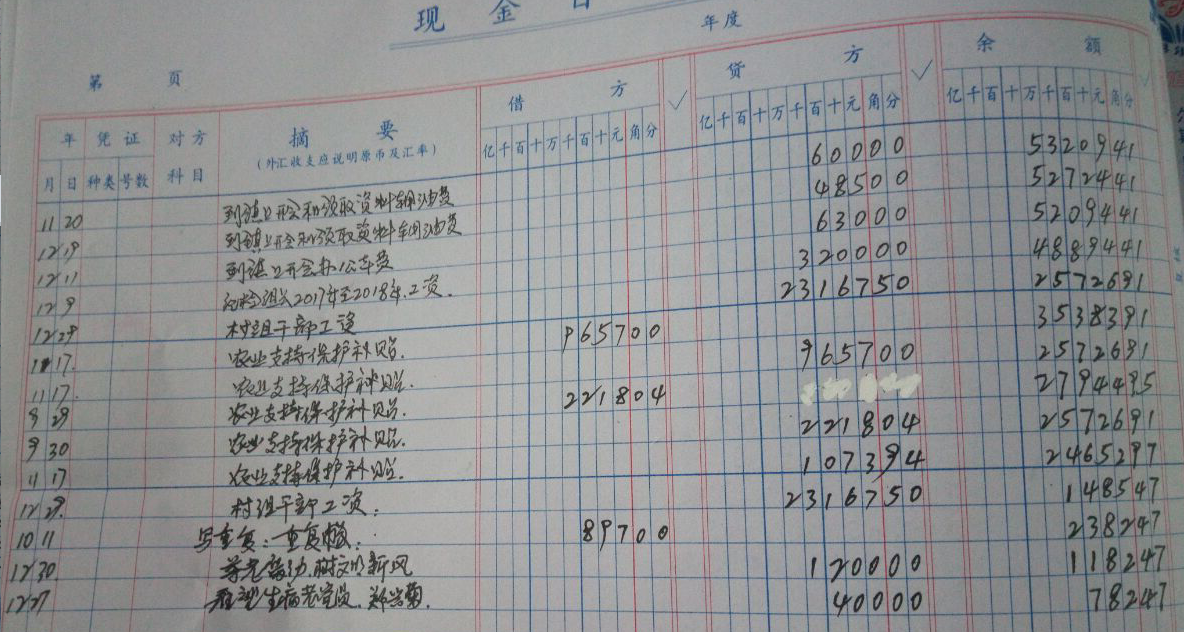 现 金 日
年度
第 页
借 方 ✓ 贷 方 ✓ 余 额 ✓
年 凭 证 对 方 摘 要 亿千百十万千百十元角分 亿千百十万千百十元角分 亿千百十万千百十元角分
(外汇收支应说明原币及汇率)
月 日 种类 号数 科 目
11 20 到镇上开会和领取资料车用油费 60000 5320941
12 19 到镇上开会和领取资料车用油费 48500 5272441
12 11 到镇上开会办公车费 63000 5209441
12 9 纪检组长2017年至2018年.工资. 320000 4889441
12 29 村组干部工资 2316750 2572691
11 17. 农业支持保护补贴. 965700 3538391
11 17. 农业支持保护补贴. 965700 2572691
9 29 农业支持保护补贴. 221804 2794495
9 30 农业支持保护补贴. 221804 2572691
11 17 农业支持保护补贴. 107394 2465297
12 29. 村组干部工资. 2316750 148547
10 11 写重复: 重复 89700 238247
12 30 新风 120000 118247
12 27 生病老党员. 40000 78247